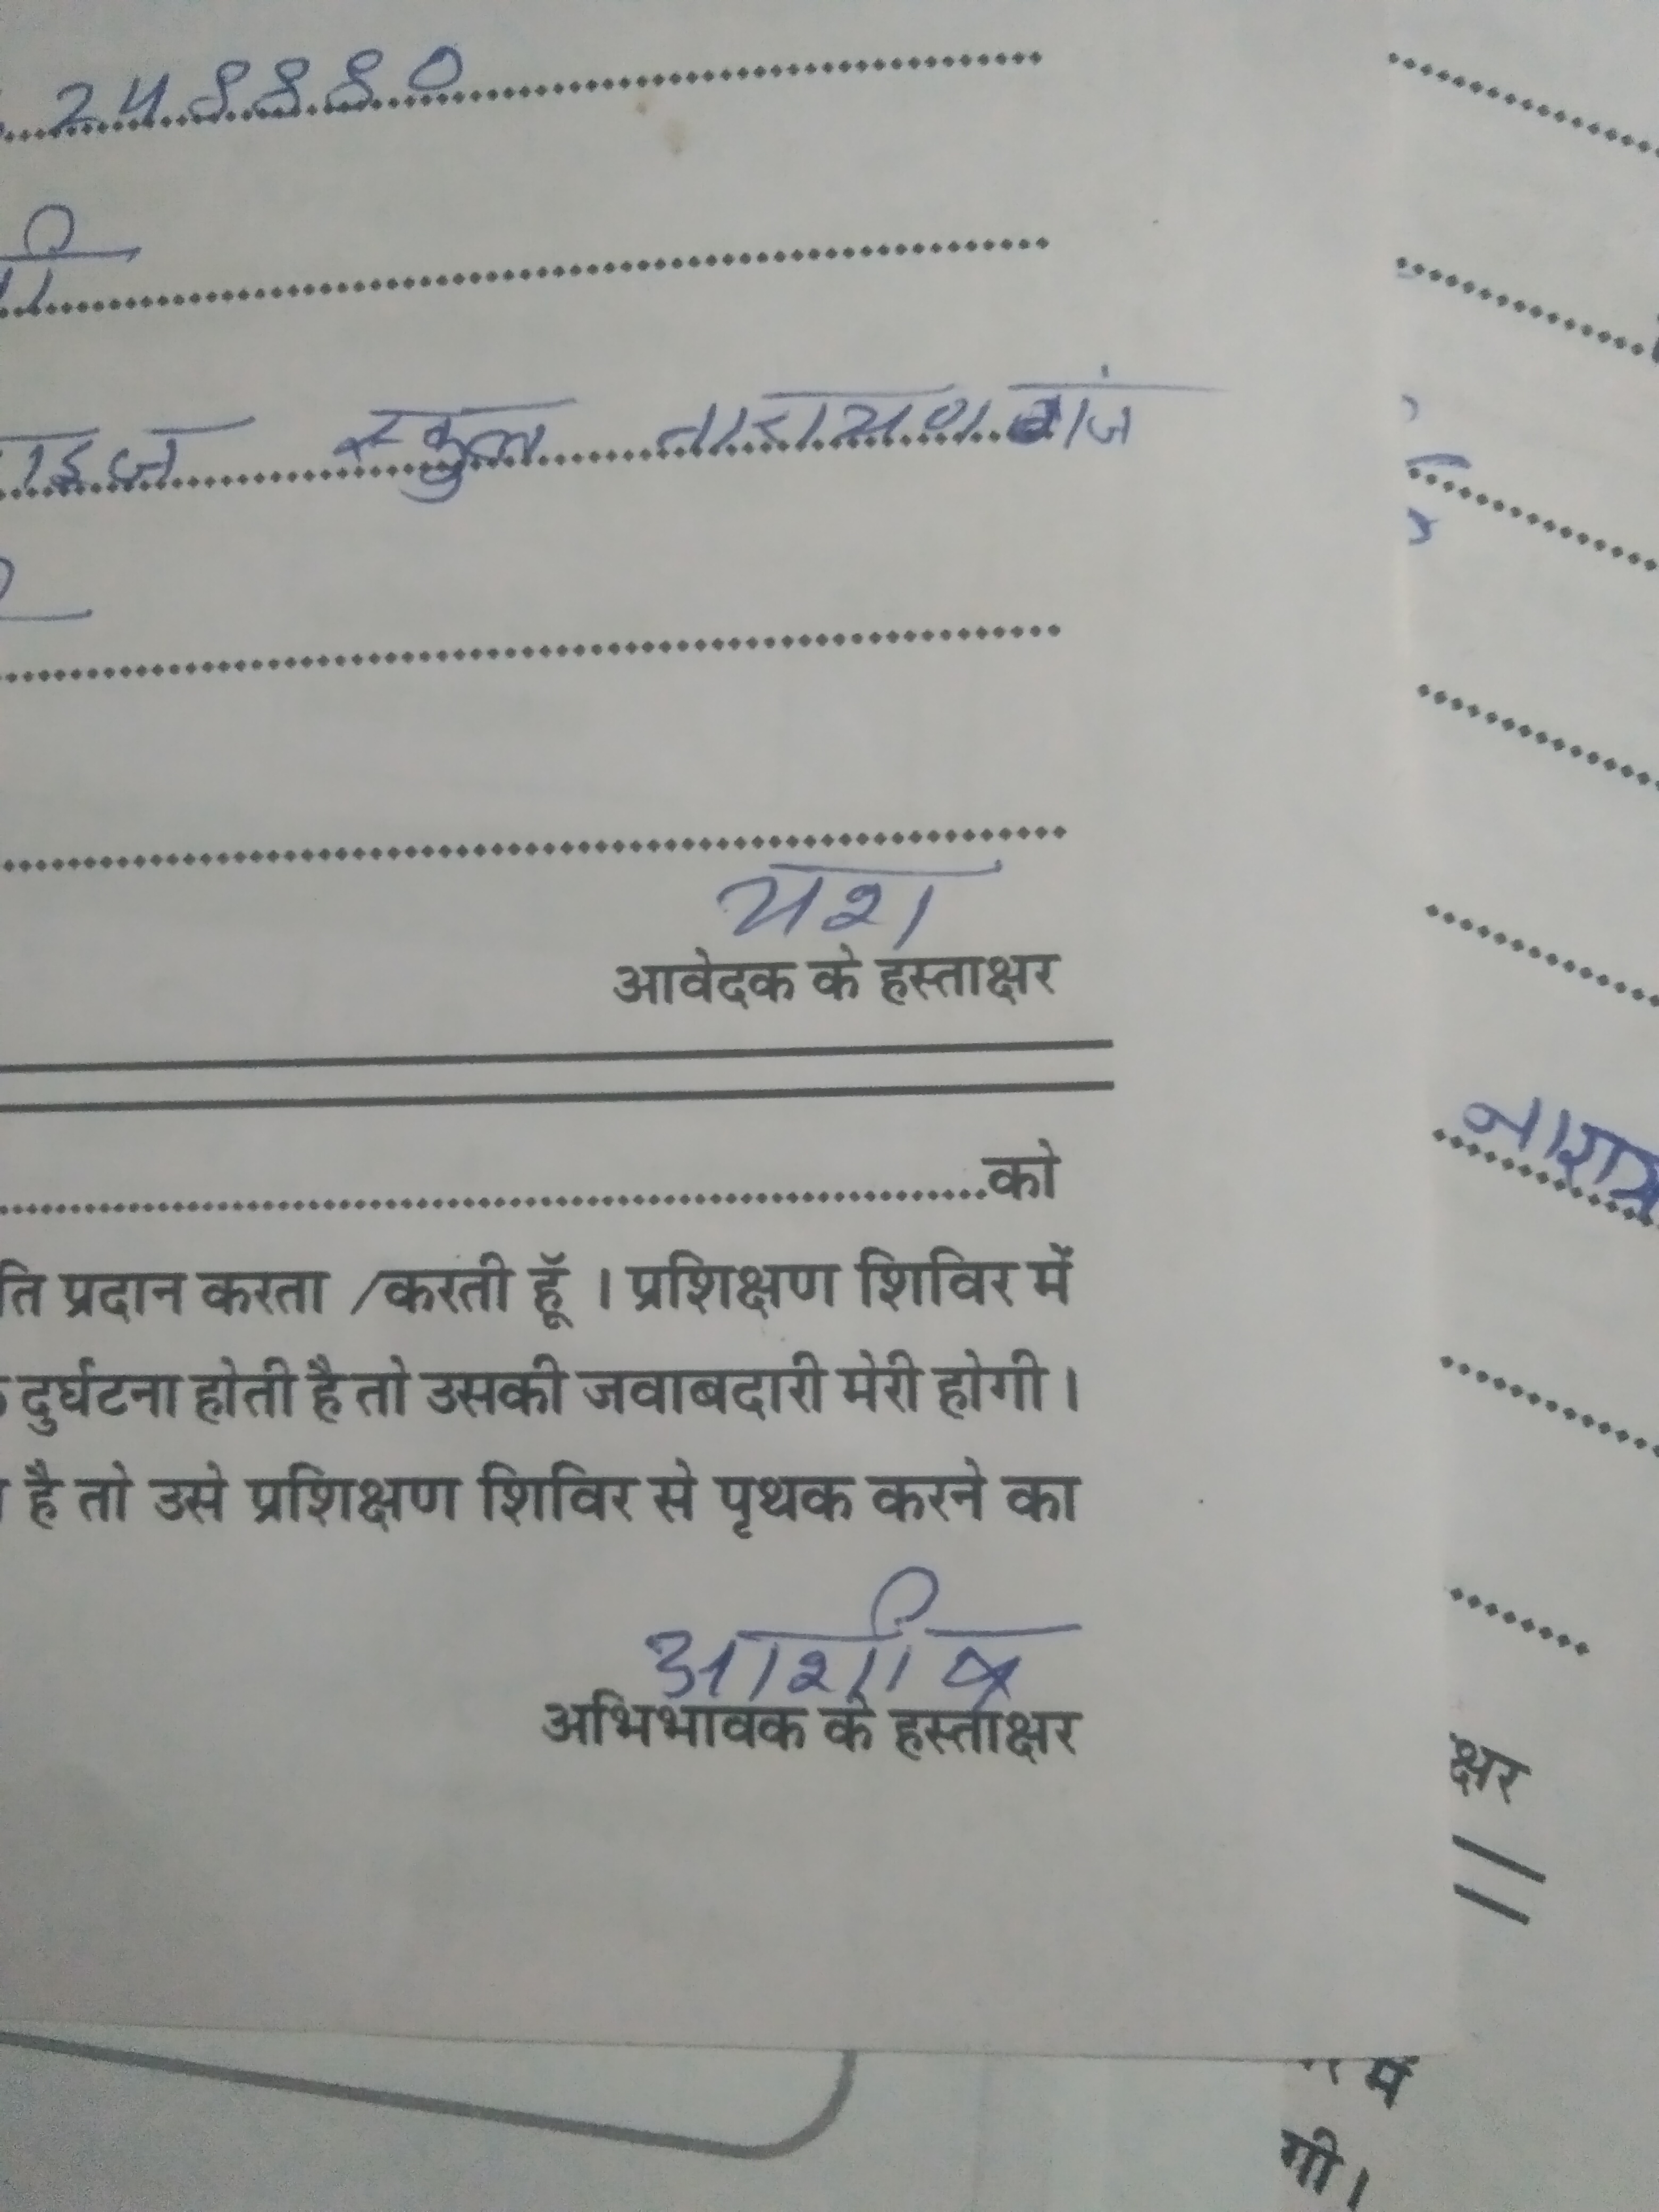 248880
स्कुल नारायण गंज
यश
आवेदक के हस्ताक्षर
को
ति प्रदान करता /करती हूँ । प्रशिक्षण शिविर में
दुर्घटना होती है तो उसकी जवाबदारी मेरी होगी ।
है तो उसे प्रशिक्षण शिविर से पृथक करने का
आशीष
अभिभावक के हस्ताक्षर
क्षर
में
गी ।